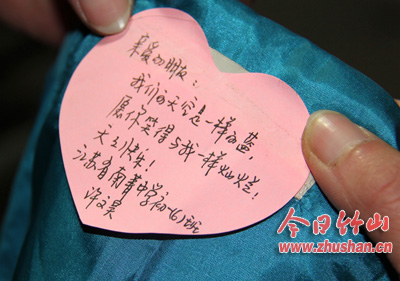 亲爱的朋友：
我们的天空是一样的蓝，
愿你笑得与我一样灿烂！
天天快乐！
江苏省南菁中学初一(6)班
许文昊
今日竹山
www.zhushan.cn